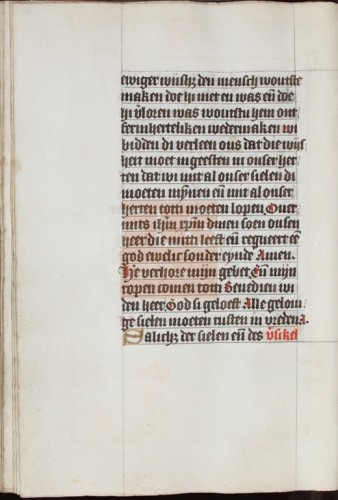 ewiger wijsh3 den mensch woutste
maken doe hi niet en was eñ doe
hi v̄loren was woutstu hem ont
fermherteliken wedermaken wi
bidden di verleen ons dat die wijs
heit moet ingeesten in onser her
ten dat wi mit al onser sielen di
moeten mȳnen eñ mit al onser
herten totti moeten lopen Ouer
mits ihm̄ xpm̄ dinen soen onsen
heer die mitti leeft eñ regneert eē
god ewelic sonder eynde Amen.
He verhore mijn gebet Eñ mijn
ropen comen totti Benedien wi
den heer God si geloeft Alle geloui
ge sielen moeten rusten in vreden A.
Salich3 der sielen eñ des v̄sikel